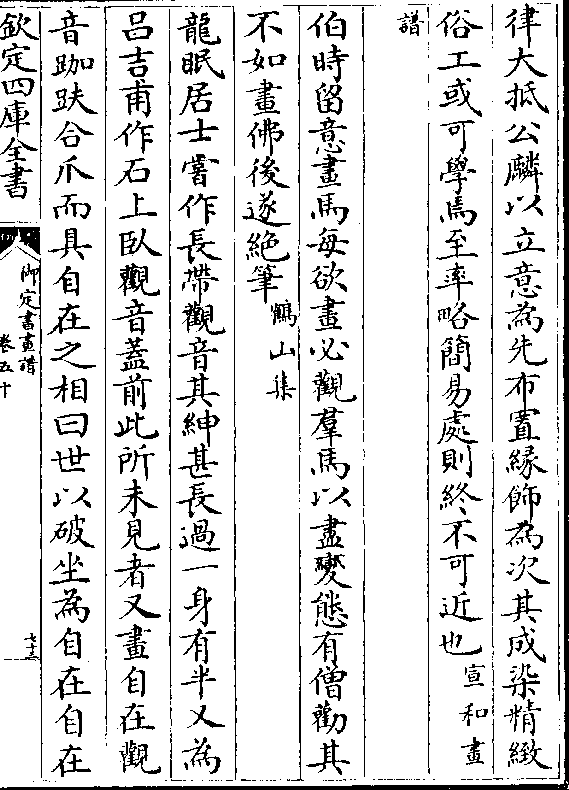 律大抵公麟以立意為先布置緣飾為次其成染精緻
俗工或可學焉至率略簡易處則終不可近也宣和畫
譜
伯時留意畫馬每欲畫必觀羣馬以盡變態有僧勸其
不如畫佛後遂絕筆鶴山集
龍眠居士嘗作長帶觀音其紳甚長過一身有半又為
吕吉甫作石上臥觀音蓋前此所未見者又畫自在觀
音跏趺合爪而具自在之相曰世以破坐為自在自在
欽定四庫全書
御定書畫譜
卷五十
七十三